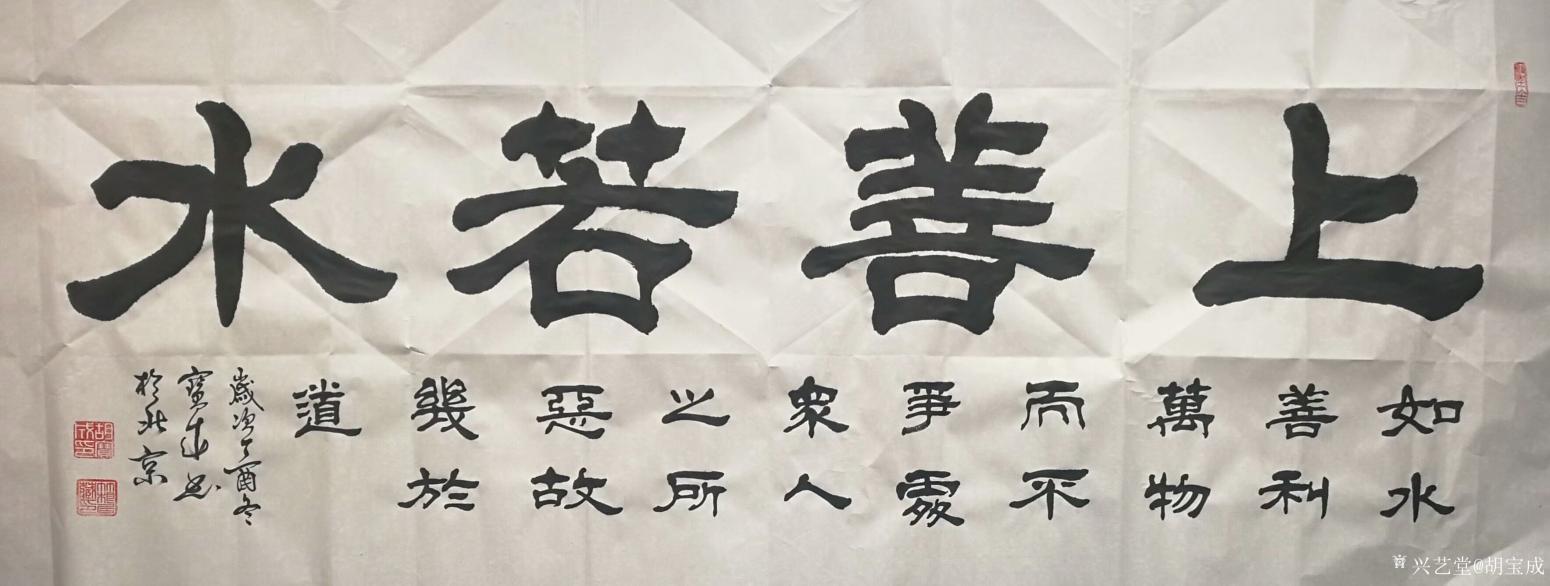 上善若水
如水
善利
萬物
而不
爭處
衆人
之所
惡故
幾於
道
歲次丁酉冬
寶成書
於北京
胡寶成印
兴艺堂@胡宝成